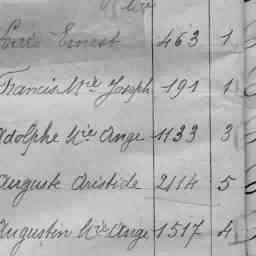 Louis Ernest 463 1
Francis Mie Joseph 191 1
Adolphe Mie Ange 1133 3
Auguste Aristide 2114 5
Augustin Mie Ange 1517 4